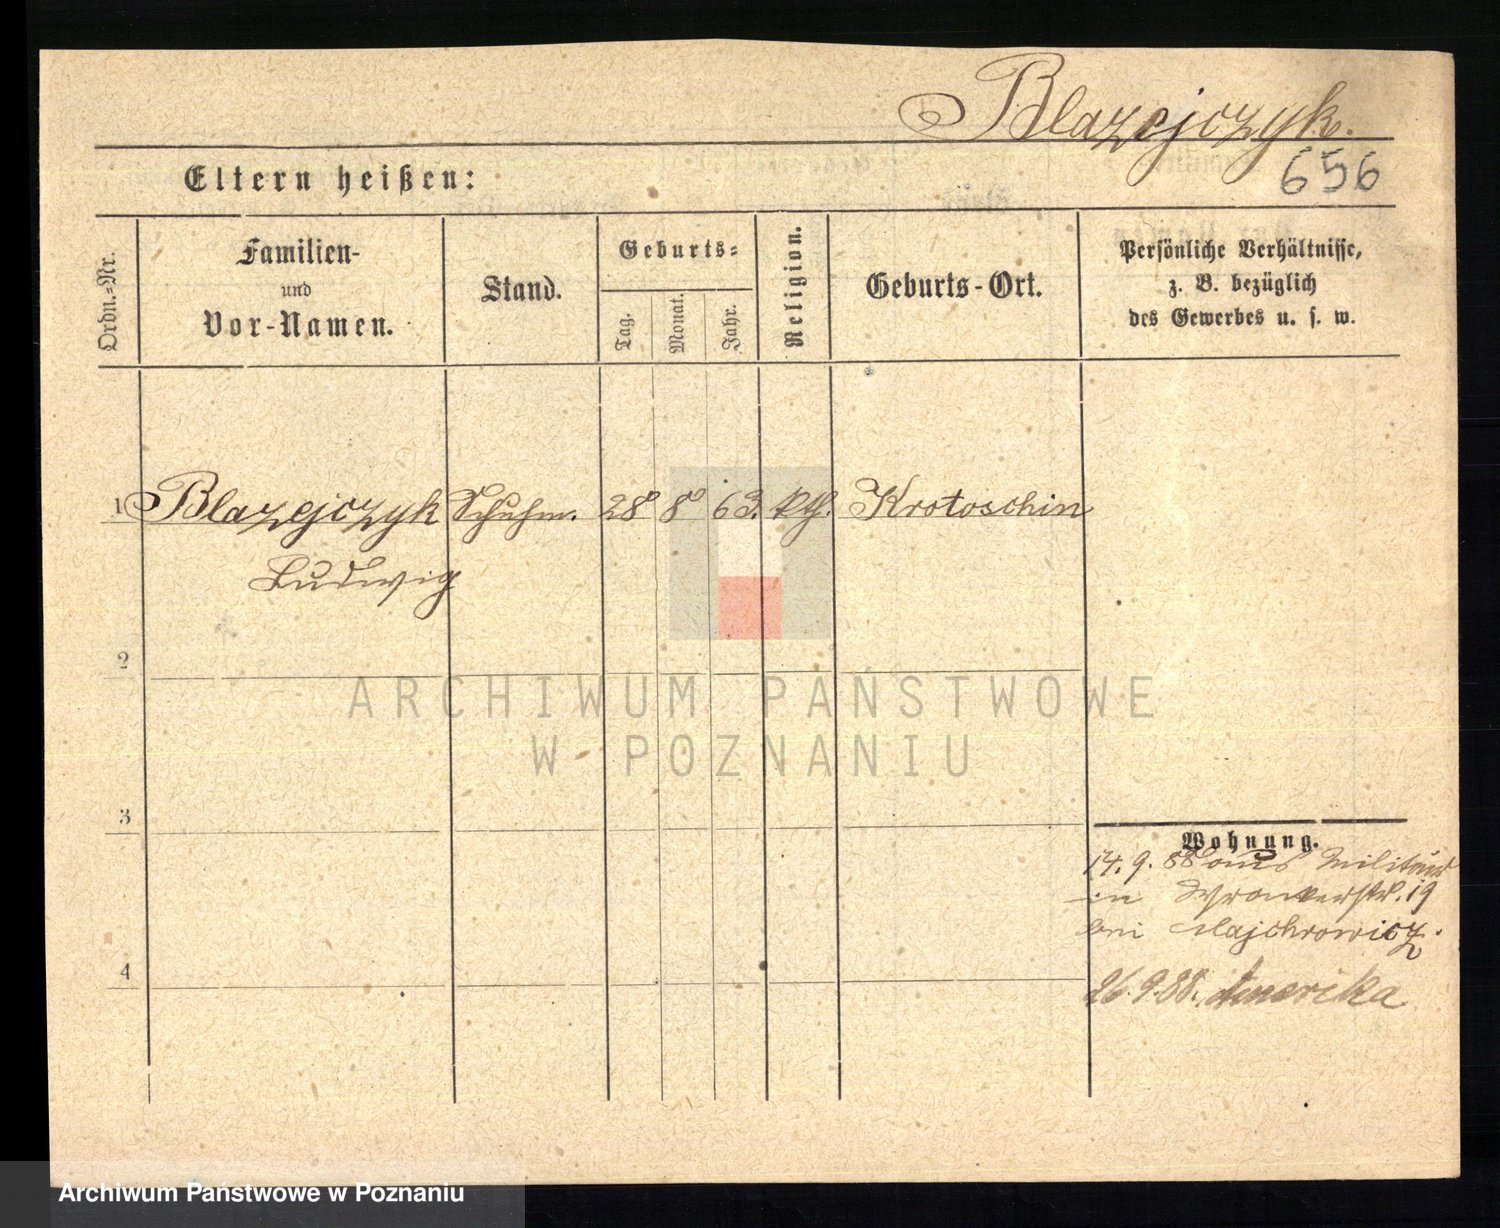 Blazejczyk.
656
Eltern heißen:
Ordn.-Nr.
Familien-
und
Vor-Namen.
Stand.
Geburts-
Tag.
Monat.
Jahr.
Religion.
Geburts-Ort.
Persönliche Verhältnisse,
z. B. bezüglich
des Gewerbes u. s. w.
1 Blazejczyk Schuhm. 28 8 63. kth. Krotoschin
Ludwig
2
ARCHIWUM PAŃSTWOWE
W POZNANIU
3
Wohnung.
14. 9. 88 aus Militair
in Wronkerstr. 19
bei Majchrowicz.
4
26. 9. 88. Amerika
Archiwum Państwowe w Poznaniu